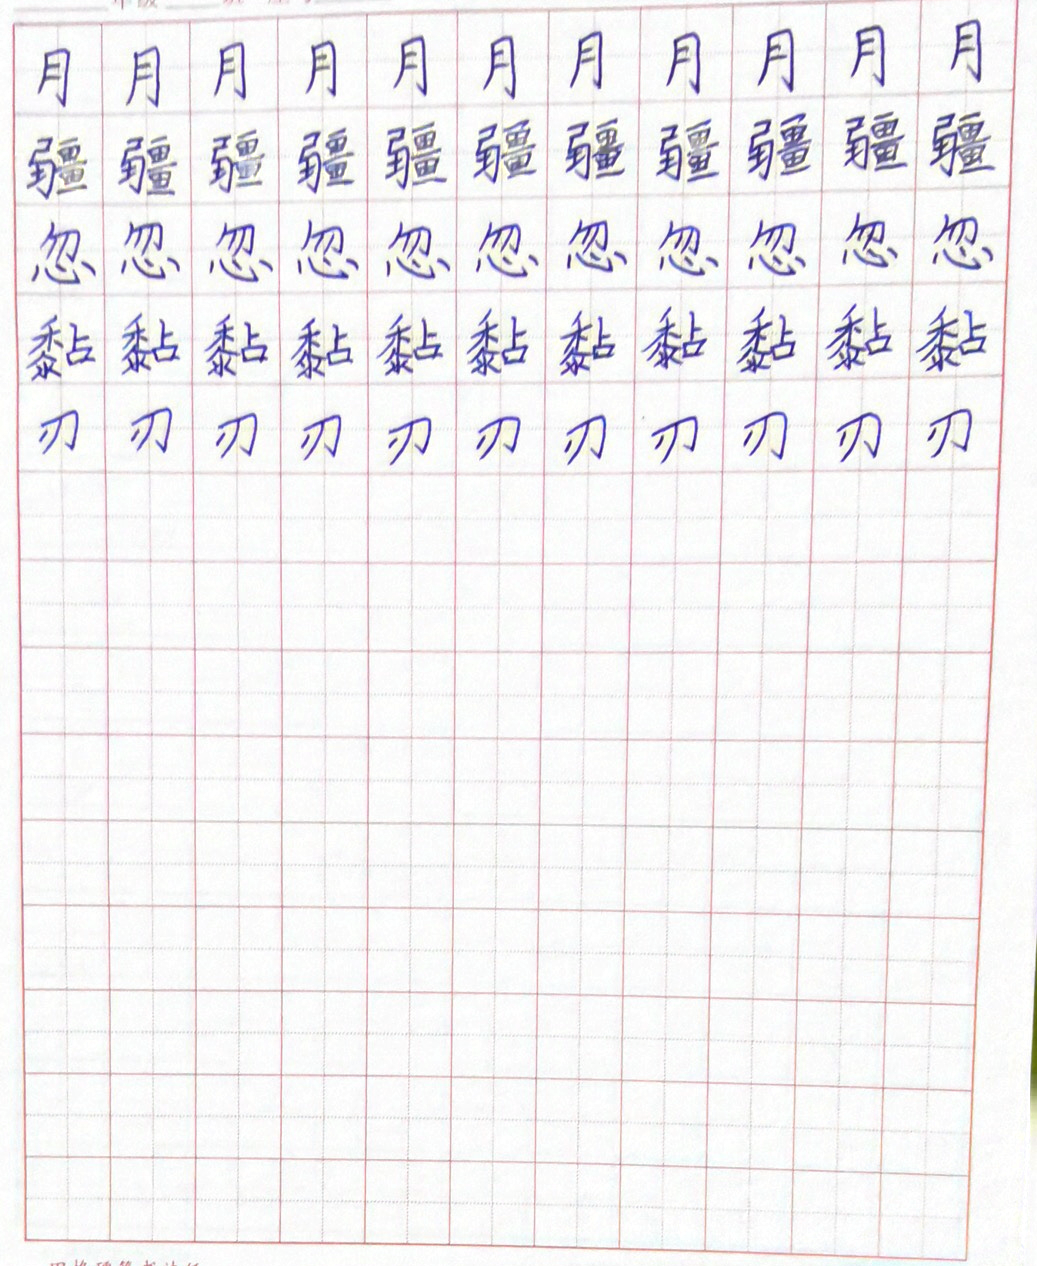 月月月月月月月月月月月
疆疆疆疆疆疆疆疆疆疆疆
忽忽忽忽忽忽忽忽忽忽忽
黏黏黏黏黏黏黏黏黏黏黏
刃刃刃刃刃刃刃刃刃刃刃